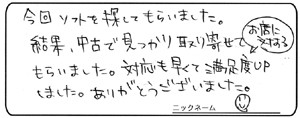 今回ソフトを探してもらいました。
結果、中古で見つかり取り寄せて
もらいました。対応も早くて満足度UP
しました。ありがとうございました。
お店に
対する
ニックネーム